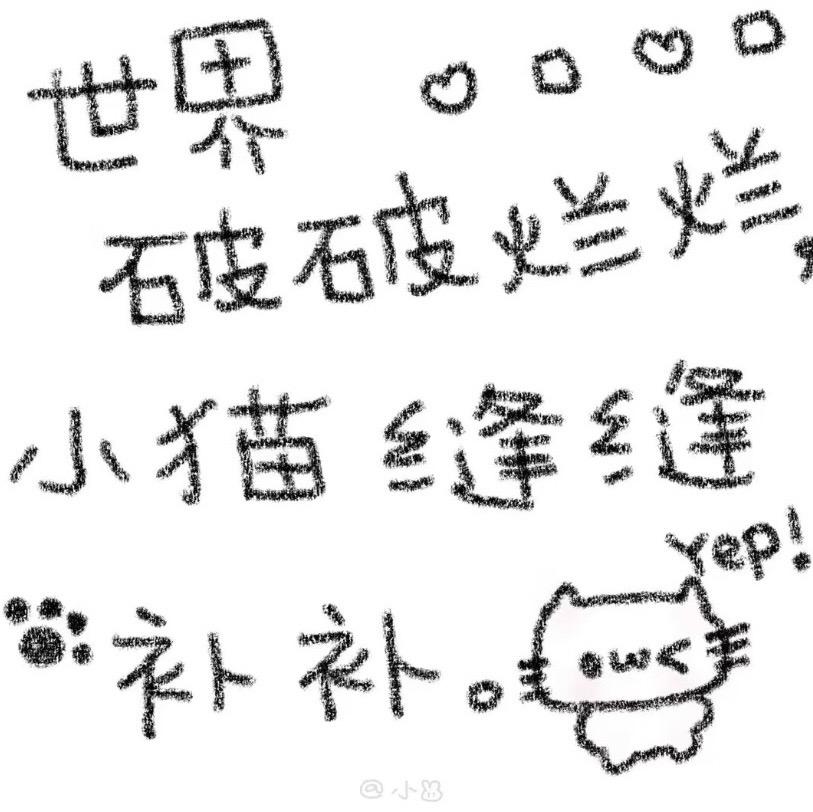 世界
破破烂烂,
小猫缝缝
补补。
Yep!
@小